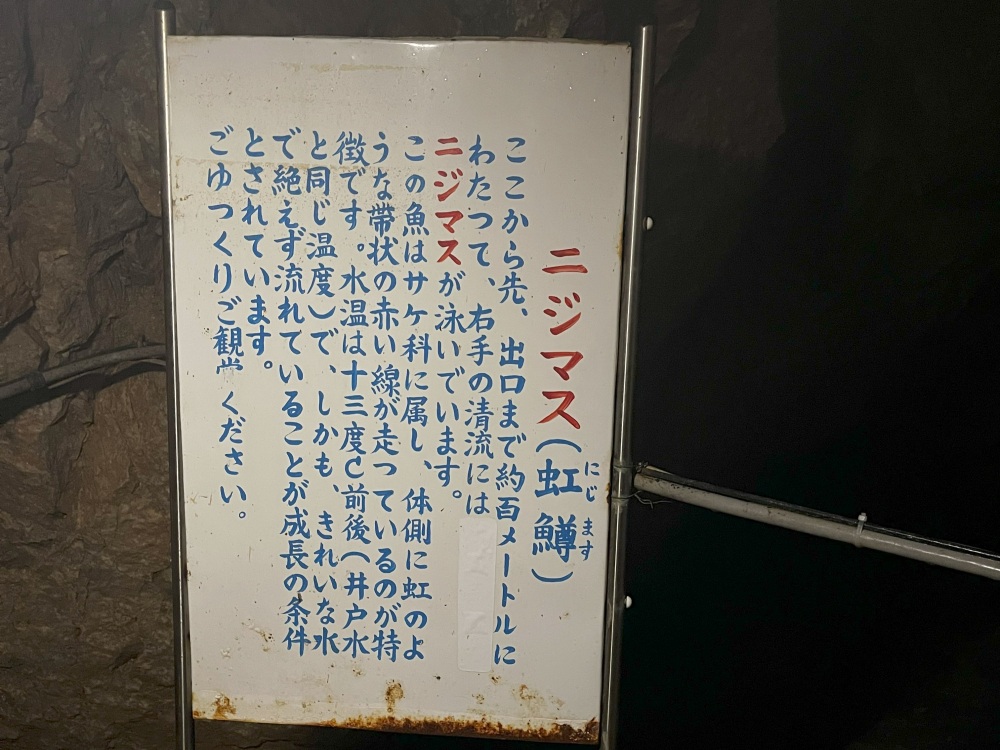 ニジマス(虹鱒)
にじ ます
ここから先、出口まで約百メートルに
わたつて、右手の清流には
ニジマスが泳いでいます。
この魚はサケ科に属し、体側に虹のよ
うな帯状の赤い線が走つているのが特
徴です。水温は十三度C前後(井戸水
と同じ温度)で、しかも、きれいな水
で絶えず流れていることが成長の条件
とされています。
ごゆつくりご観覚ください。